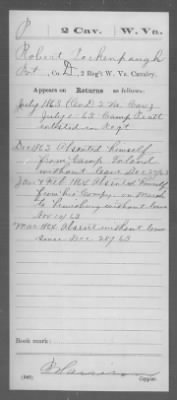 P 2 Cav. W. Va.
Robert Pockenpaugh
Pvt, Co. D, 2 Reg't W. Va. Cavalry.
Appears on Returns as follows:
July 1863 (Co D) 2 Va Cav
July 63 Camp Piatt
enlisted in Regt
Dec 1863 Absented himself
from Camp Toland
without leave Dec 29/63
Jan & Feb 1864 Absented himself
from his Compy on March
to Lewisburg without leave
Nov 10/63
Mar 1864 Absent without leave
since Dec 28/63
Book mark:
(546)
Copyist.